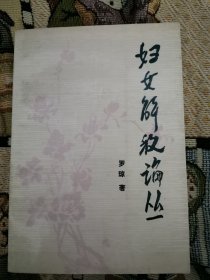 妇女解放论丛
罗琼 著